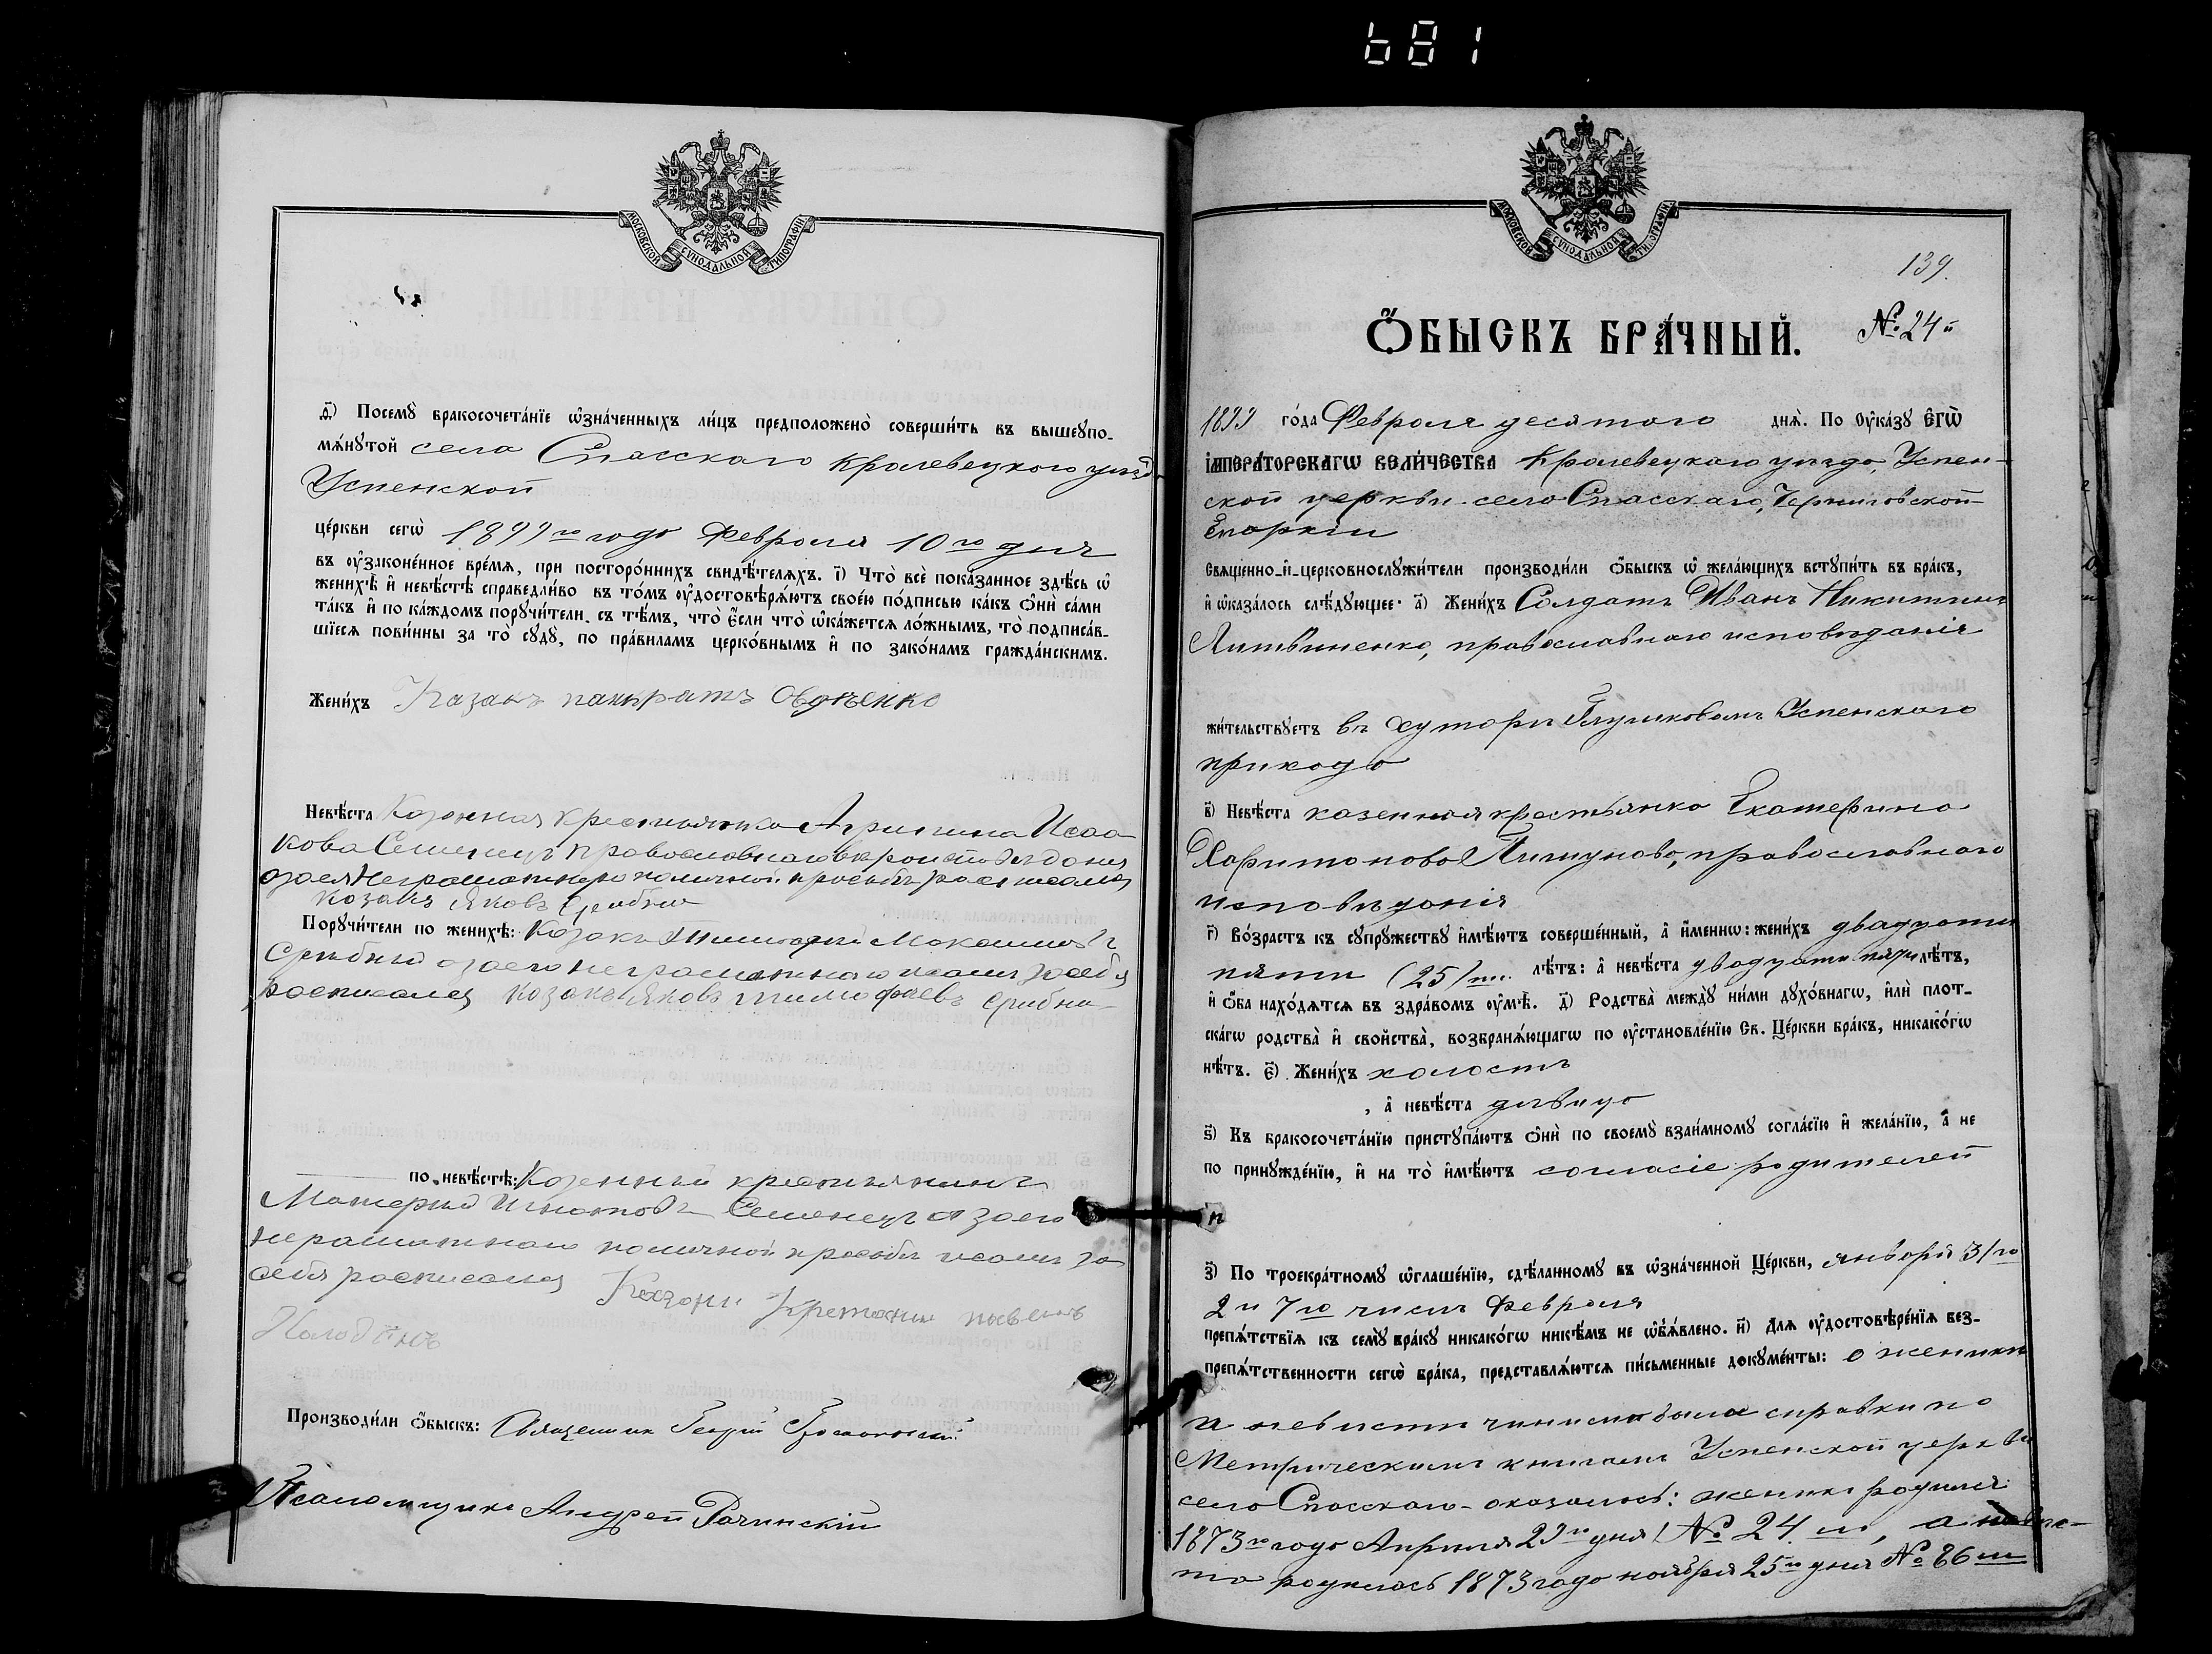 681
МОСКОВСКОЙ СѴНОДАЛЬНОЙ ТИПОГРАФІИ
ѳ҃) Посемꙋ̀ бракосочета́нїе ѡ҆зна́ченныхъ ли́цъ предположено̀ соверши́ть въ вышеꙋпо-
мѧ́нꙋтой села Спасскаго Кролевецкого уезда
Успенской
це́ркви сегѡ̀ 1899го года Февраля 10го дня
въ ᲂу҆законе́нное вре́мѧ, при посторо́ннихъ свидѣ́телѧхъ. і҃) Что̀ всѐ пока́занное здѣ́сь ѡ҆
женихѣ̀ и҆ невѣ́стѣ справедли́во въ то́мъ ᲂу҆достовѣрѧ́ютъ свое́ю по́дписью ка́къ ѻ҆нѝ са́ми
та́къ и҆ по ка́ждомъ порꙋчи́тели, съ тѣ́мъ, что̀ є҆́сли что̀ ѡ҆ка́жетсѧ ло́жнымъ, то̀ подписа́в-
шїесѧ пови́нны за то̀ сꙋдꙋ̀, по пра́виламъ церко́внымъ и҆ по зако́намъ гражда́нскимъ.
Жени́хъ Казакъ панкратъ Овдѣенко
Невѣ́ста Козенная крестьянка Агрипина Исаа-
кова Семенец православнаго вероисповедания
а за ея неграмотную по личной просьбе росписался
Козакъ Яковъ Срибный
Порꙋчи́тели по женихѣ̀: Козакъ Тимофей
Срибный а за его неграмотнаго и самъ за себя
росписался козакъ Яковъ тимофѣевъ Срибны-
по невѣ́стѣ: Козенный крестьянинъ
Игнатовъ Семенец а за его
неграмотнаго по личной просьбе и самъ за
себя росписался
Производи́ли ѻ҆́быскъ: Священник Георгий
Псаломщикъ Андрей Рачинскій
МОСКОВСКОЙ СѴНОДАЛЬНОЙ ТИПОГРАФІИ
139.
Ѻ҆́БЫСКЪ БРА́ЧНЫЙ. № 24й
1899 го́да Февраля десятаго днѧ̀. По ᲂу҆ка́зꙋ Є҆гѡ̀
І҆мпера́торскагѡ Вели́чества Кролевецкаго уезда, Успен-
ской церкви села Спасскаго, Черниговской
Епархіи
Свѧще́нно-и҆-церковнослꙋжи́тели производи́ли ѻ҆́быскъ ѡ҆ жела́ющихъ встꙋпи́ть въ бра́къ,
и҆ ѡ҆каза́лось слѣ́дꙋющее: а҃) Жени́хъ Солдатъ Иванъ Никитинъ
Литвиненко, православнаго исповѣданія
жи́тельствꙋетъ въ хуторѣ Глушковомъ Успенскаго
прихода
в҃) Невѣ́ста казенная крестьянка Екатерина
Харитонова Пигунова, православнаго
исповѣданія
г҃) Во́зрастъ къ сꙋпрꙋ́жествꙋ и҆мѣ́ютъ соверше́нный, а҆ и҆́меннѡ: жени́хъ двадцати
пяти (25) ти лѣ́тъ: а҆ невѣ́ста двадцати пяти лѣ́тъ,
и҆ ѻ҆́ба нахо́дѧтсѧ въ здра́вомъ ᲂу҆мѣ̀. д҃) Родства̀ междꙋ̀ ни́ми дꙋхо́внагѡ, и҆лѝ плот-
ска́гѡ родства̀ и҆ свойства̀, возбранѧ́ющагѡ по ᲂу҆становле́нїю Св. Це́ркви бра́къ, никако́гѡ
нѣ́тъ. є҃) Жени́хъ холостъ
, а҆ невѣ́ста дѣвица
ѕ҃) Къ бракосочета́нїю пристꙋпа́ютъ ѻ҆нѝ по своемꙋ̀ взаи́мномꙋ согла́сїю и҆ жела́нїю, а҆ не
по принꙋжде́нїю, и҆ на то̀ и҆мѣ́ютъ согласіе родителей
з҃) По троекра́тномꙋ ѡ҆глаше́нїю, сдѣ́ланномꙋ въ ѡ҆зна́ченной Це́ркви, января 31го
2 и 7го числъ Февраля
препѧ́тствїѧ къ семꙋ̀ бра́кꙋ никако́гѡ никѣ́мъ не ѡ҆бъѧ́влено. и҃) Длѧ ᲂу҆достовѣре́нїѧ без-
препѧ́тственности сегѡ̀ бра́ка, представлѧ́ютсѧ пи́сьменные докꙋме́нты: о женихѣ
и невѣсти чинима была справка по
Метрическимъ книгамъ Успенской церкви
села Спасскаго - оказалось: женихъ родился
1873го года Апреля 29го дня № 24 м, а невѣс-
та родилась 1873 года ноября 25го дня № 86 м